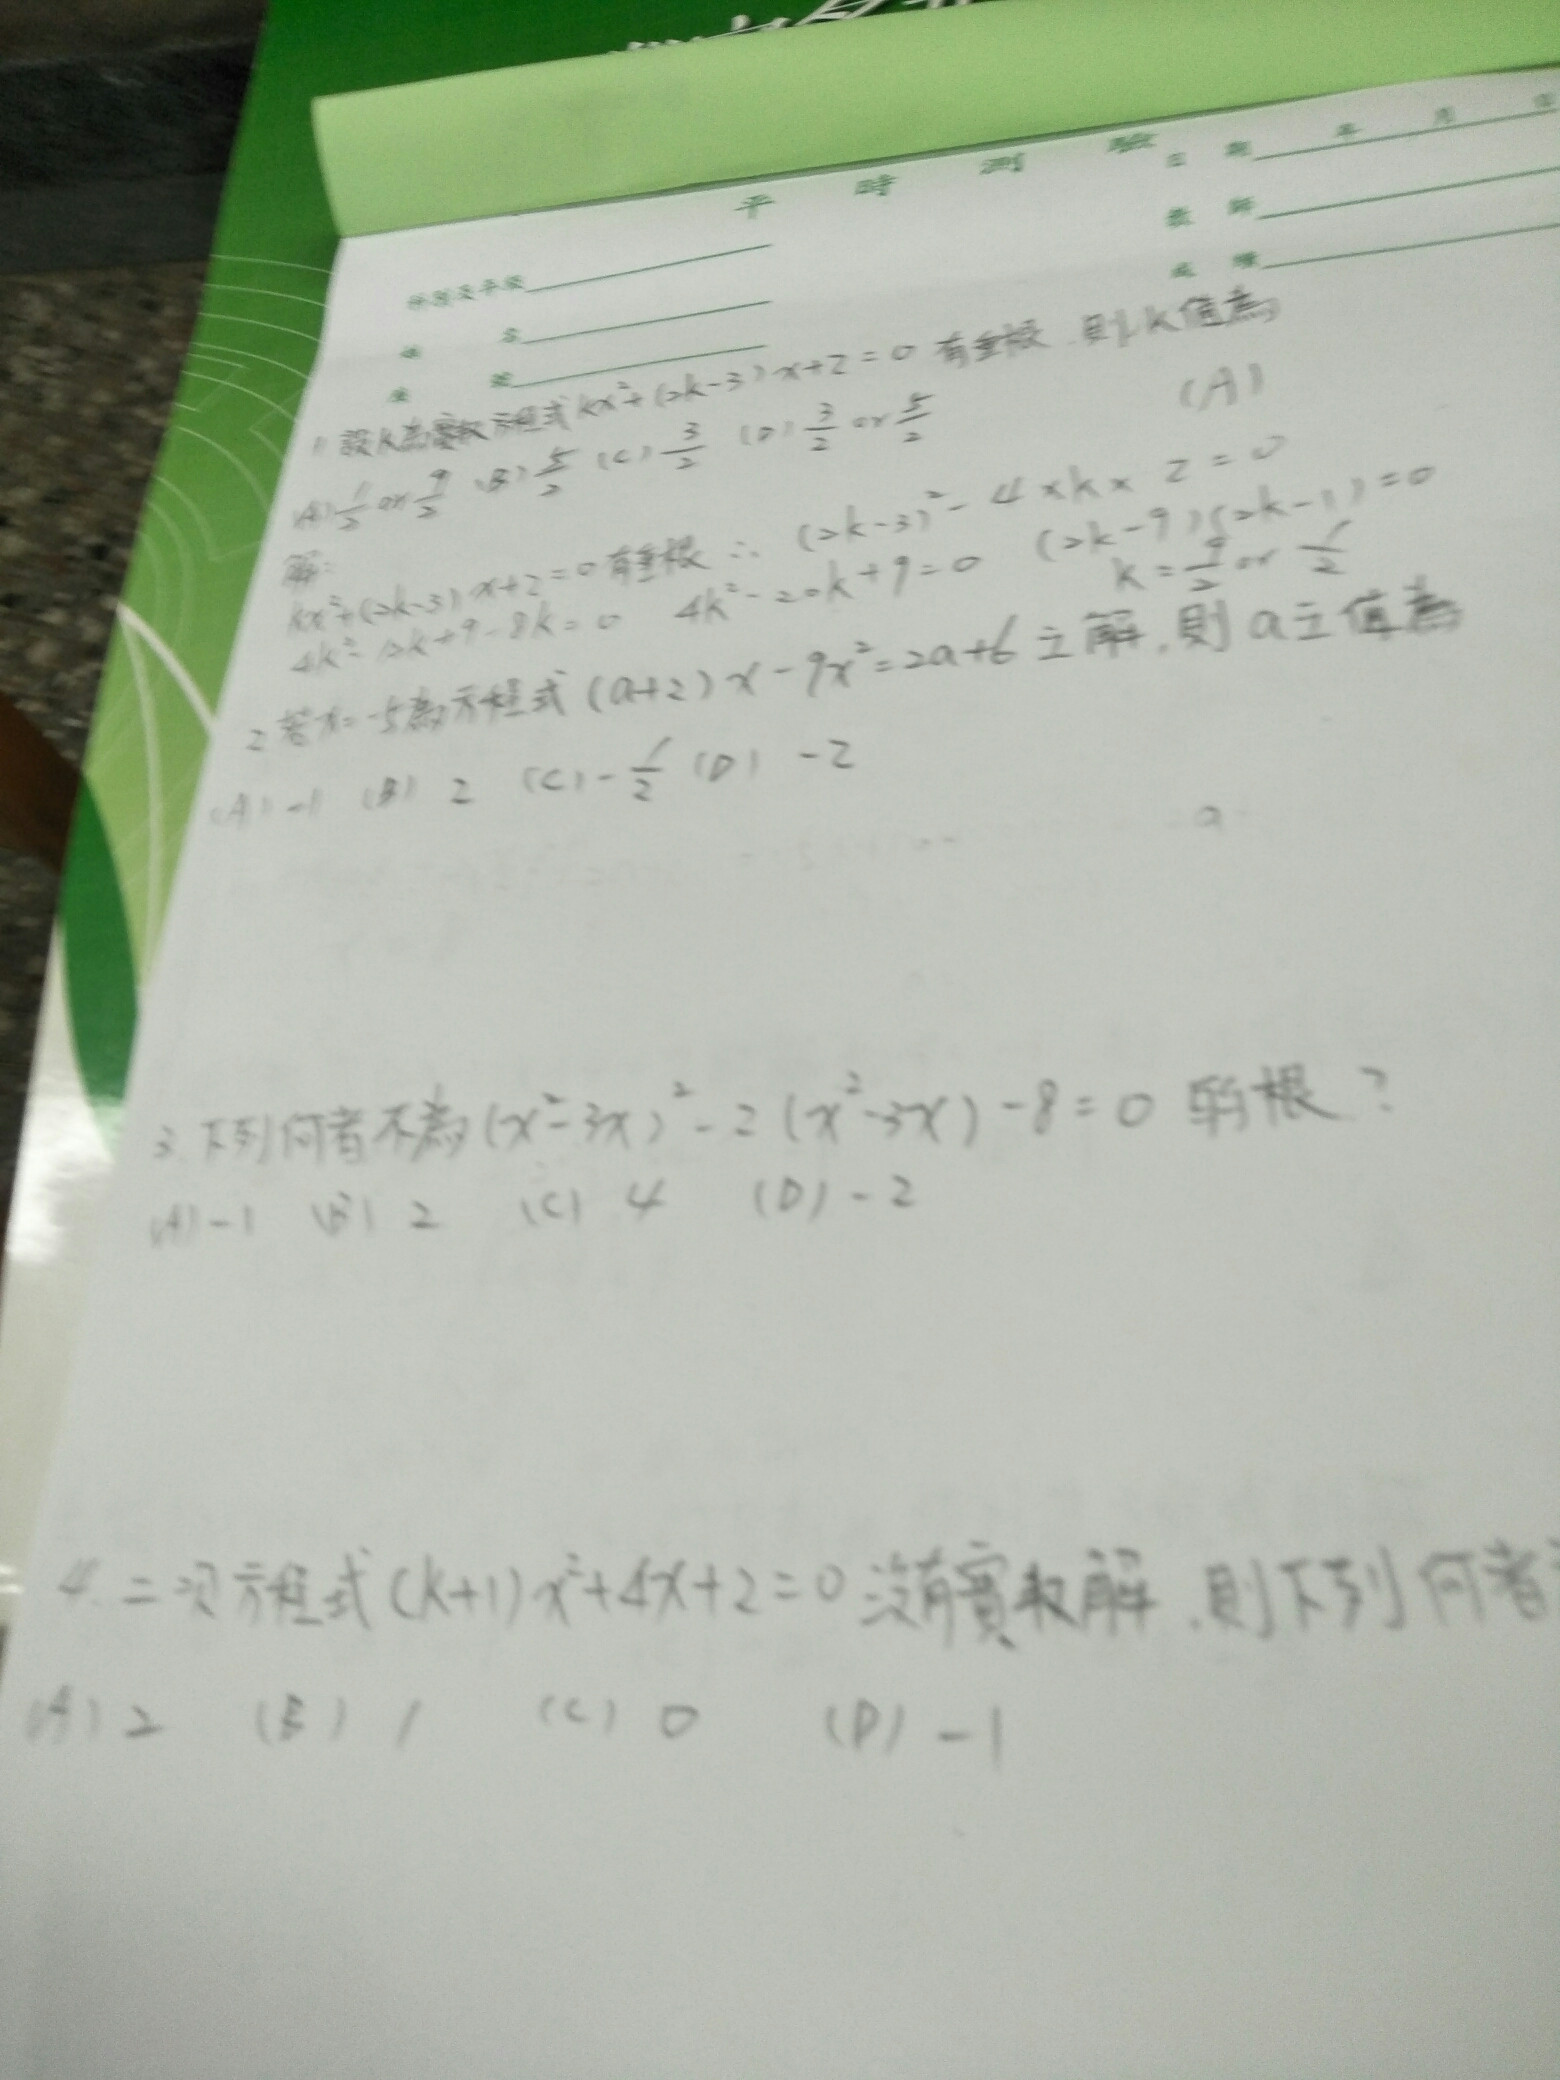 平時測驗
日期 年 月 日
教師
成績
科別及年級
姓名
座號
1. 設k為實數方程式kx²+(2k-3)x+2=0有重根,則k值為
(A)
(A) 1/2 or 9/2 (B) 5/2 (C) 3/2 (D) 3/2 or 5/2
解:
kx²+(2k-3)x+2=0有重根 ∴ (2k-3)²-4×k×2=0
4k²-12k+9-8k=0 4k²-20k+9=0 (2k-9)(2k-1)=0
k=9/2 or 1/2
2. 若x=-5為方程式(a+2)x-9x²=2a+6之解,則a之值為
(A) -1 (B) 2 (C) -1/2 (D) -2
3. 下列何者不為(x²-3x)²-2(x²-3x)-8=0的根?
(A) -1 (B) 2 (C) 4 (D) -2
4. 二次方程式(k+1)x²+4x+2=0沒有實數解,則下列何者
(A) 2 (B) 1 (C) 0 (D) -1